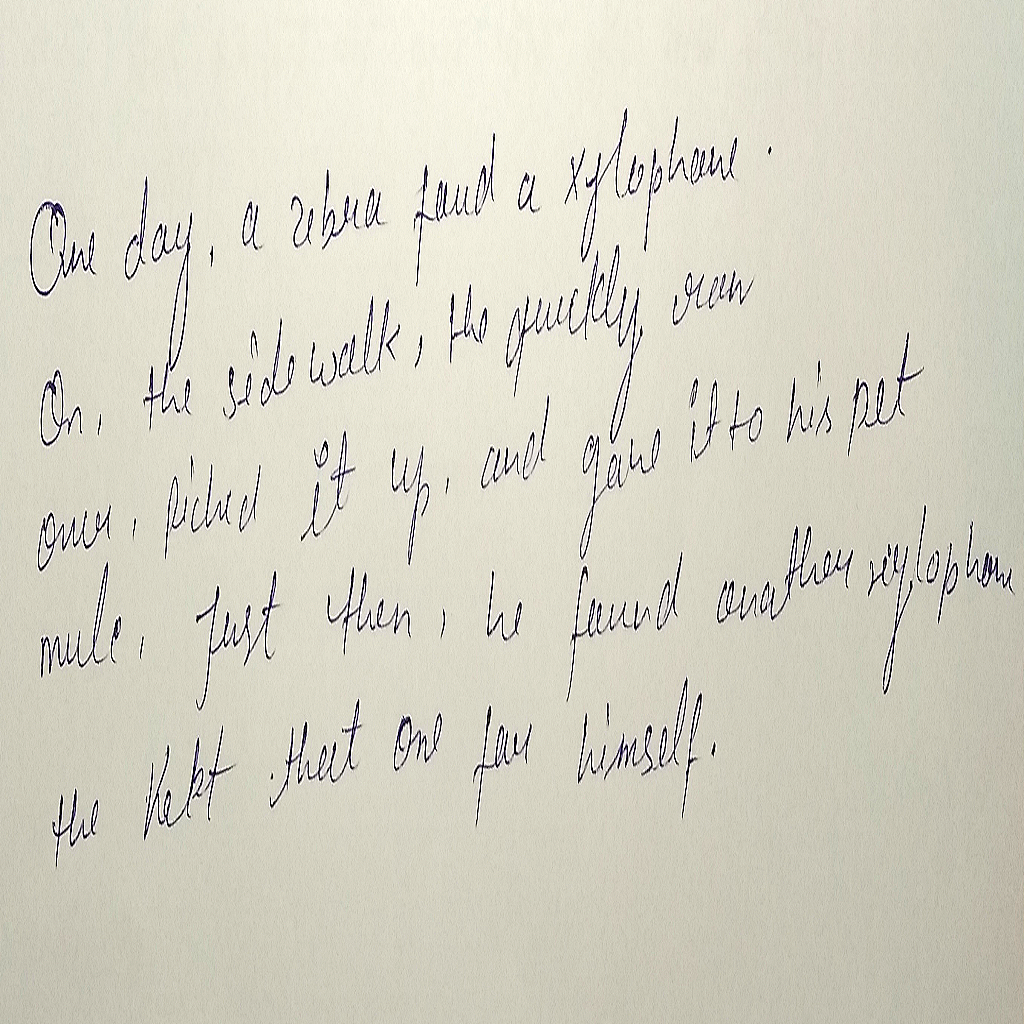 One day, a zebra found a xylophone.
On, the sidewalk, the quickly ran
over, picked it up, and gave it to his pet
mule, Just then, he found another xylophone
the kekt that one for himself.